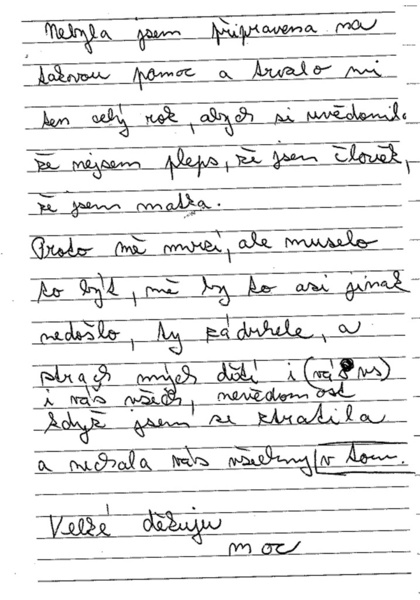 Nebyla jsem připravena na
takovou pomoc a trvalo mi
ten celý rok, abych si uvědomil.
že nejsem pleps, že jsem člověk,
že jsem matka.
Proto mě mrzí, ale muselo
to být, mě by to asi jinak
nedošlo, ty zádrhele, a
strach mých dětí i (váš vs)
i vás všech, nevědomost
když jsem se ztratila
a nechala vás všechny v tom.
Velké děkuju
moc